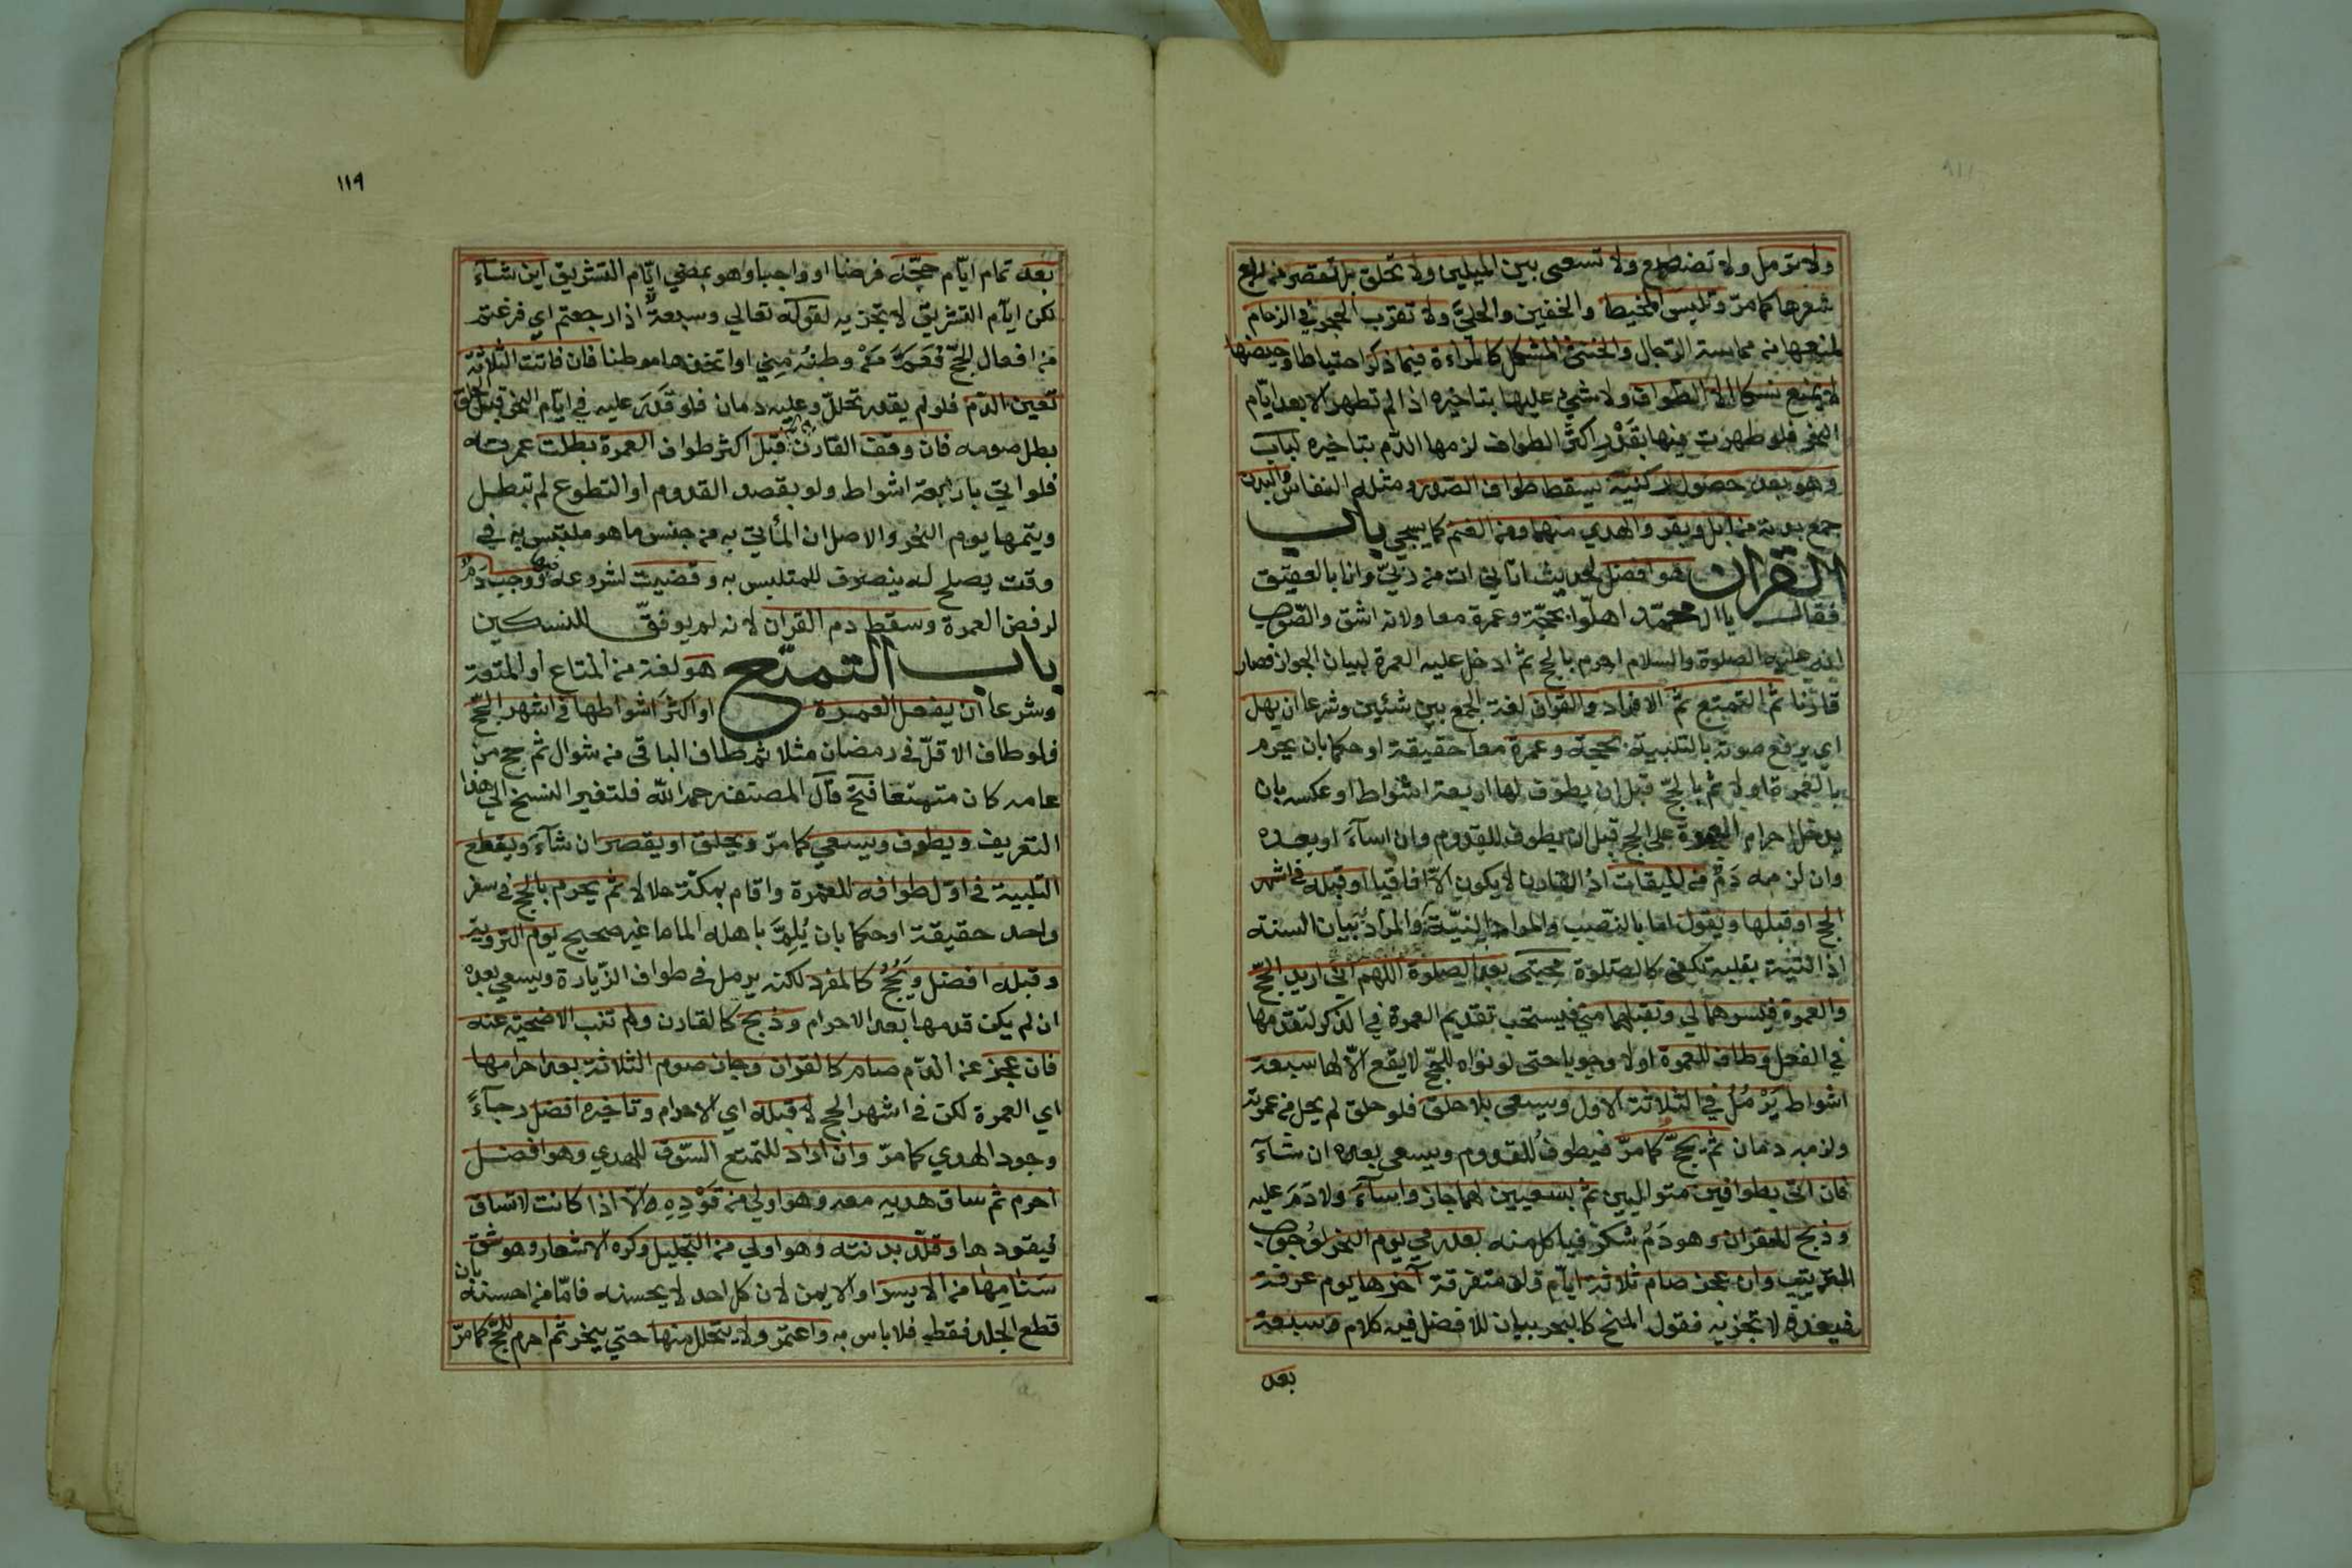 ولا ترمل ولا تضطبع ولا تسعى بين الميلين ولا تحلق بل تقصر من ربع
شعرها كما مر وتلبس المخيط والخفين والحلي ولا تقرب الحجر في الزحام
لمنعها من مماسة الرجال والخنثى المشكل كالمراءة فيما ذكر احتياطا وحيضها
لا يمنع نسكا الا الطواف ولا شيء عليها بتاخيره اذا لم تطهر الا بعد ايام
النحر فلو طهرت فيها بقدر اكثر الطواف لزمها الدم بتاخيره لباب
وهو بعد حصول ركنيه يسقط طواف الصدر ومثله النفاس والبدن
جمع بدنة من ابل وبقر والهدي منهما ومن الغنم كما يسجي باب
القران هو افضل لحديث اتاني ات من ربي وانا بالعقيق
فقال يا ال محمد اهلوا بحجة وعمرة معا ولانه اشق والصواب
انه عليه الصلوة والسلام احرم بالحج ثم ادخل عليه العمرة لبيان الجواز فصار
قارنا ثم التمتع ثم الافراد والقران لغة الجمع بين شئين وشرعا ان يهل
اي يرفع صوته بالتلبية بحجة وعمرة معا حقيقة او حكما بان يحرم
بالعمرة اولا ثم بالحج قبل ان يطوف لها اربعة اشواط او عكسه بان
يدخل احرام العمرة على الحج قبل ان يطوف للقدوم وان اسآء او بعده
وان لزمه دم من الميقات اذ القارن لا يكون الا افاقيا او قبله في اشهر
الحج او قبلها ويقول اما بالنصب والمراد به النية والمراد بيان السنة
اذ النية بقلبه تكفي كالصلوة مجتبى بعد الصلوة اللهم اني اريد الحج
والعمرة فيسرهما لي وتقبلهما مني فيستحب تقديم العمرة في الذكر لتقدمها
في الفعل وطاف للعمرة اولا وجوبا حتى لو نواه للحج لا يقع الا لها سبعة
اشواط يرمل في الثلاثة الاول ويسعى بلا حلق فلو حلق لم يحل من عمرته
ولزمه دمان ثم يحج كما مر فيطوف للقدوم ويسعى بعده ان شآء
فان اتى بطوافين متواليين ثم بسعيين لهما جاز واسآء ولا دم عليه
وذبح للقران وهو دم شكر فياكل منه بعد رمي يوم النحر لوجوب
الترتيب وان عجز صام ثلاثة ايام ولو متفرقة آخرها يوم عرفة
فبعده لا تجزيه فقول المنح كالبحر بيان للافضل فيه كلام وسبعة
بعد
١١٩
بعد تمام ايام حجه فرضا او واجبا وهو بمضي ايام التشريق اين شآء
لكن ايام التشريق لا تجزيه لقوله تعالي وسبعة اذا رجعتم اي فرغتم
من افعال الحج فعم من وطنه مني او اتخذها موطنا فان فاتت الثلاثة
تعين الدم فلو لم يقدر تحلل وعليه دمان فلو قدر عليه في ايام النحر قبل الحلق
بطل صومه فان وقف القارن بعرفة قبل اكثر طواف العمرة بطلت عمرته
فلو اتي باربعة اشواط ولو بقصد القدوم او التطوع لم تبطل
ويتمها يوم النحر والاصل ان المأتي به من جنس ما هو ملتبس به في
وقت يصلح له ينصرف للمتلبس به وقضيت لشروعه فيها ووجب دم
لرفض العمرة وسقط دم القران لانه لم يوفق للنسكين
باب التمتع هو لغة من المتاع او المتعة
وشرعا ان يفعل العمرة او اكثر اشواطها في اشهر الحج
فلو طاف الاقل في رمضان مثلا ثم طاف الباقي في شوال ثم حج من
عامه كان متمتعا فتح قال المصنف رحمه الله فلتغير النسخ الي هذا
التعريف ويطوف ويسعي كما مر ويحلق او يقصر ان شآء ويقطع
التلبية في اول طوافه للعمرة واقام بمكة حلالا ثم يحرم بالحج في سفر
واحد حقيقة او حكما بان يلم باهله الماما غير صحيح يوم التروية
وقبله افضل ويحج كالمفرد لكنه يرمل في طواف الزيارة ويسعي بعده
ان لم يكن قدمها بعد الاحرام وذبح كالقارن ولم تنب الاضحية عنه
فان عجز عن الدم صام كالقران وجاز صوم الثلاثة بعد احرامها
اي العمرة لكن في اشهر الحج لا قبله اي الاحرام وتاخيره افضل رجآء
وجود الهدي كما مر وان اراد للتمتع السوق للهدي وهو افضل
احرم ثم ساق هديه معه وهو اولي من قوده الا اذا كانت لا تساق
فيقودها وقلد بدنته وهو اولي من التجليل وكره الاشعار وهو شق
سنامها من الايسر او الايمن لان كل احد لا يحسنه فاما من احسنه بان
قطع الجلد فقط فلا باس به واعتمر ولا يتحلل منها حتي ينحر ثم احرم للحج كما مر